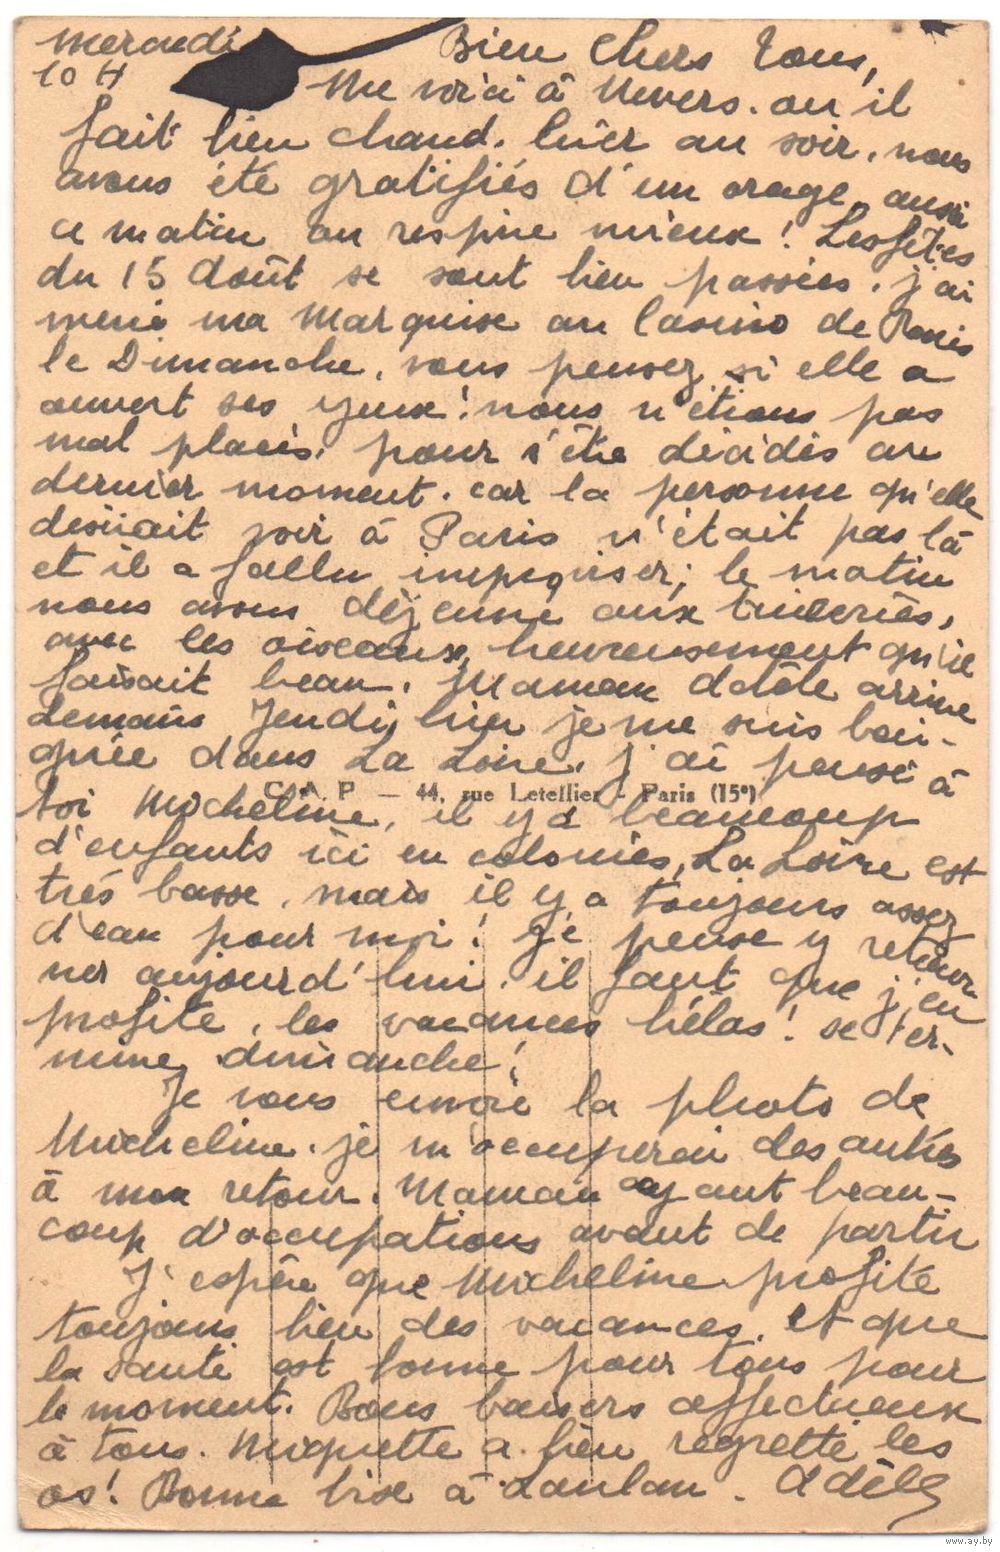 Mercredi
10 H
Bien Chers Tous,
Me voici à Nevers. ou il
fait bien chaud. hier au soir, nous
avons été gratifiés d'un orage, aussi
ce matin on respire mieux! Les fêtes
du 15 Août se sont bien passées. j'ai
mené ma Marquise au Casino de Paris
le Dimanche, vous pensez si elle a
ouvert ses yeux! nous n'étions pas
mal placés, pour s'être décidés au
dernier moment. car la personne qu'elle
desirait voir à Paris n'était pas là
et il a fallu improviser; le matin
nous avons déjeuné aux tuileries,
avec les oiseaux, heureusement qu'il
faisait beau. Maman Adèle arrive
demain Jeudi, hier je me suis bai-
gnée dans La Loire. j'ai pensé à
toi Micheline, il y a beaucoup
C.A.P — 44, rue Letellier - Paris (15e)
d'enfants ici en colonies, La Loire est
très basse, mais il y a toujours assez
d'eau pour moi! Je pense y retour
ner aujourd'hui. il faut que j'en
profite, les vacances hélas! se ter-
mine dimanche!
Je vous envoie la photo de
Micheline. je m'occuperai des autres
à mon retour. Maman ayant beau-
coup d'occupations avant de partir
J'espère que Micheline profite
toujours bien des vacances. et que
la santé est bonne pour tous pour
le moment. Bons baisers affectueux
à tous. Miquette a bien regretté les
os! Bonne bise à Loulou. Adèle
www.ay.by